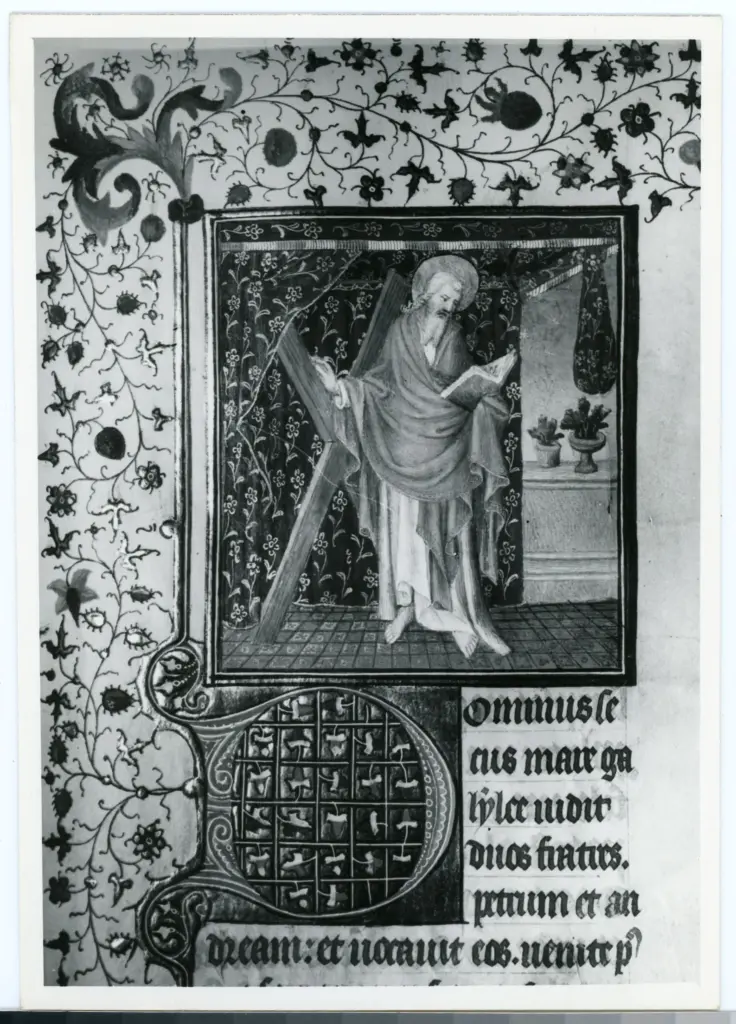 Dominus se
cus mare ga
lylee uidit
duos fratres.
petrum et an
dream: et uocauit eos. uenite p